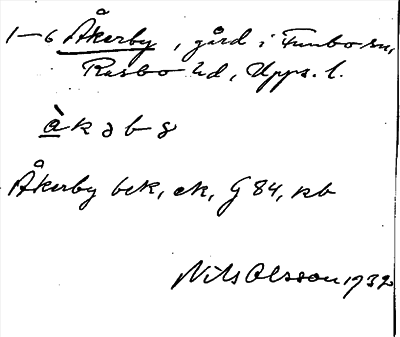 1-6 Åkerby, gård i Funbo sn,
Rasbo hd, Upps. l.
Åkerby bek, ek, G 84, kb
Nils Olsson 1932